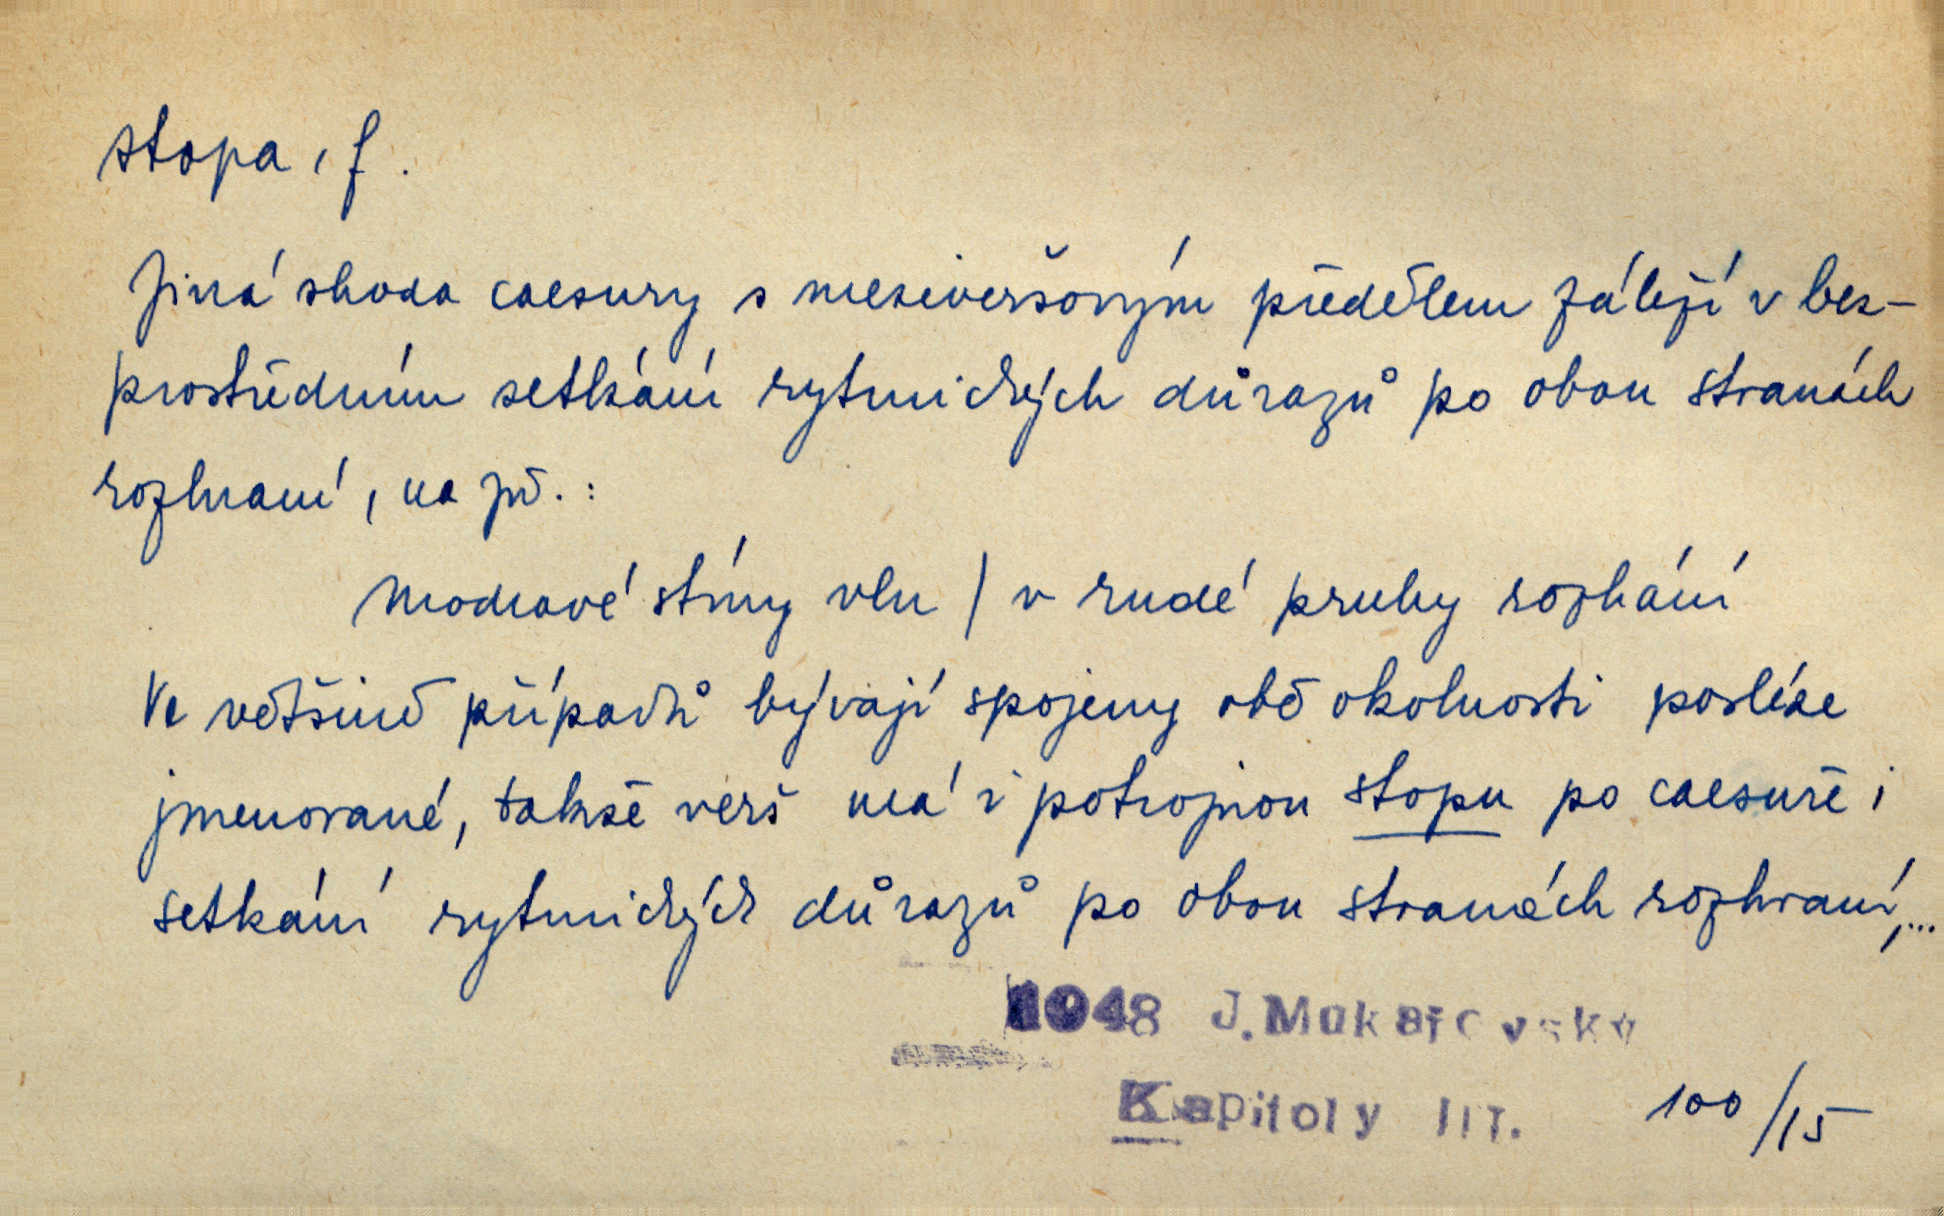 stopa, f.
Jiná shoda caesury s meziveršovým předělem záleží v bez-
prostředním setkání rytmických důrazů po obou stranách
rozhraní, na př.:
Modravé stíny vln / v rudé pruhy rozhání
Ve většině případů bývají spojeny obě okolnosti posléze
jmenované, takže verš má i potrojnou stopu po caesuře i
setkání rytmických důrazů po obou stranách rozhraní,...
1948 J. Mukařovský
Kapitoly III. 100/15